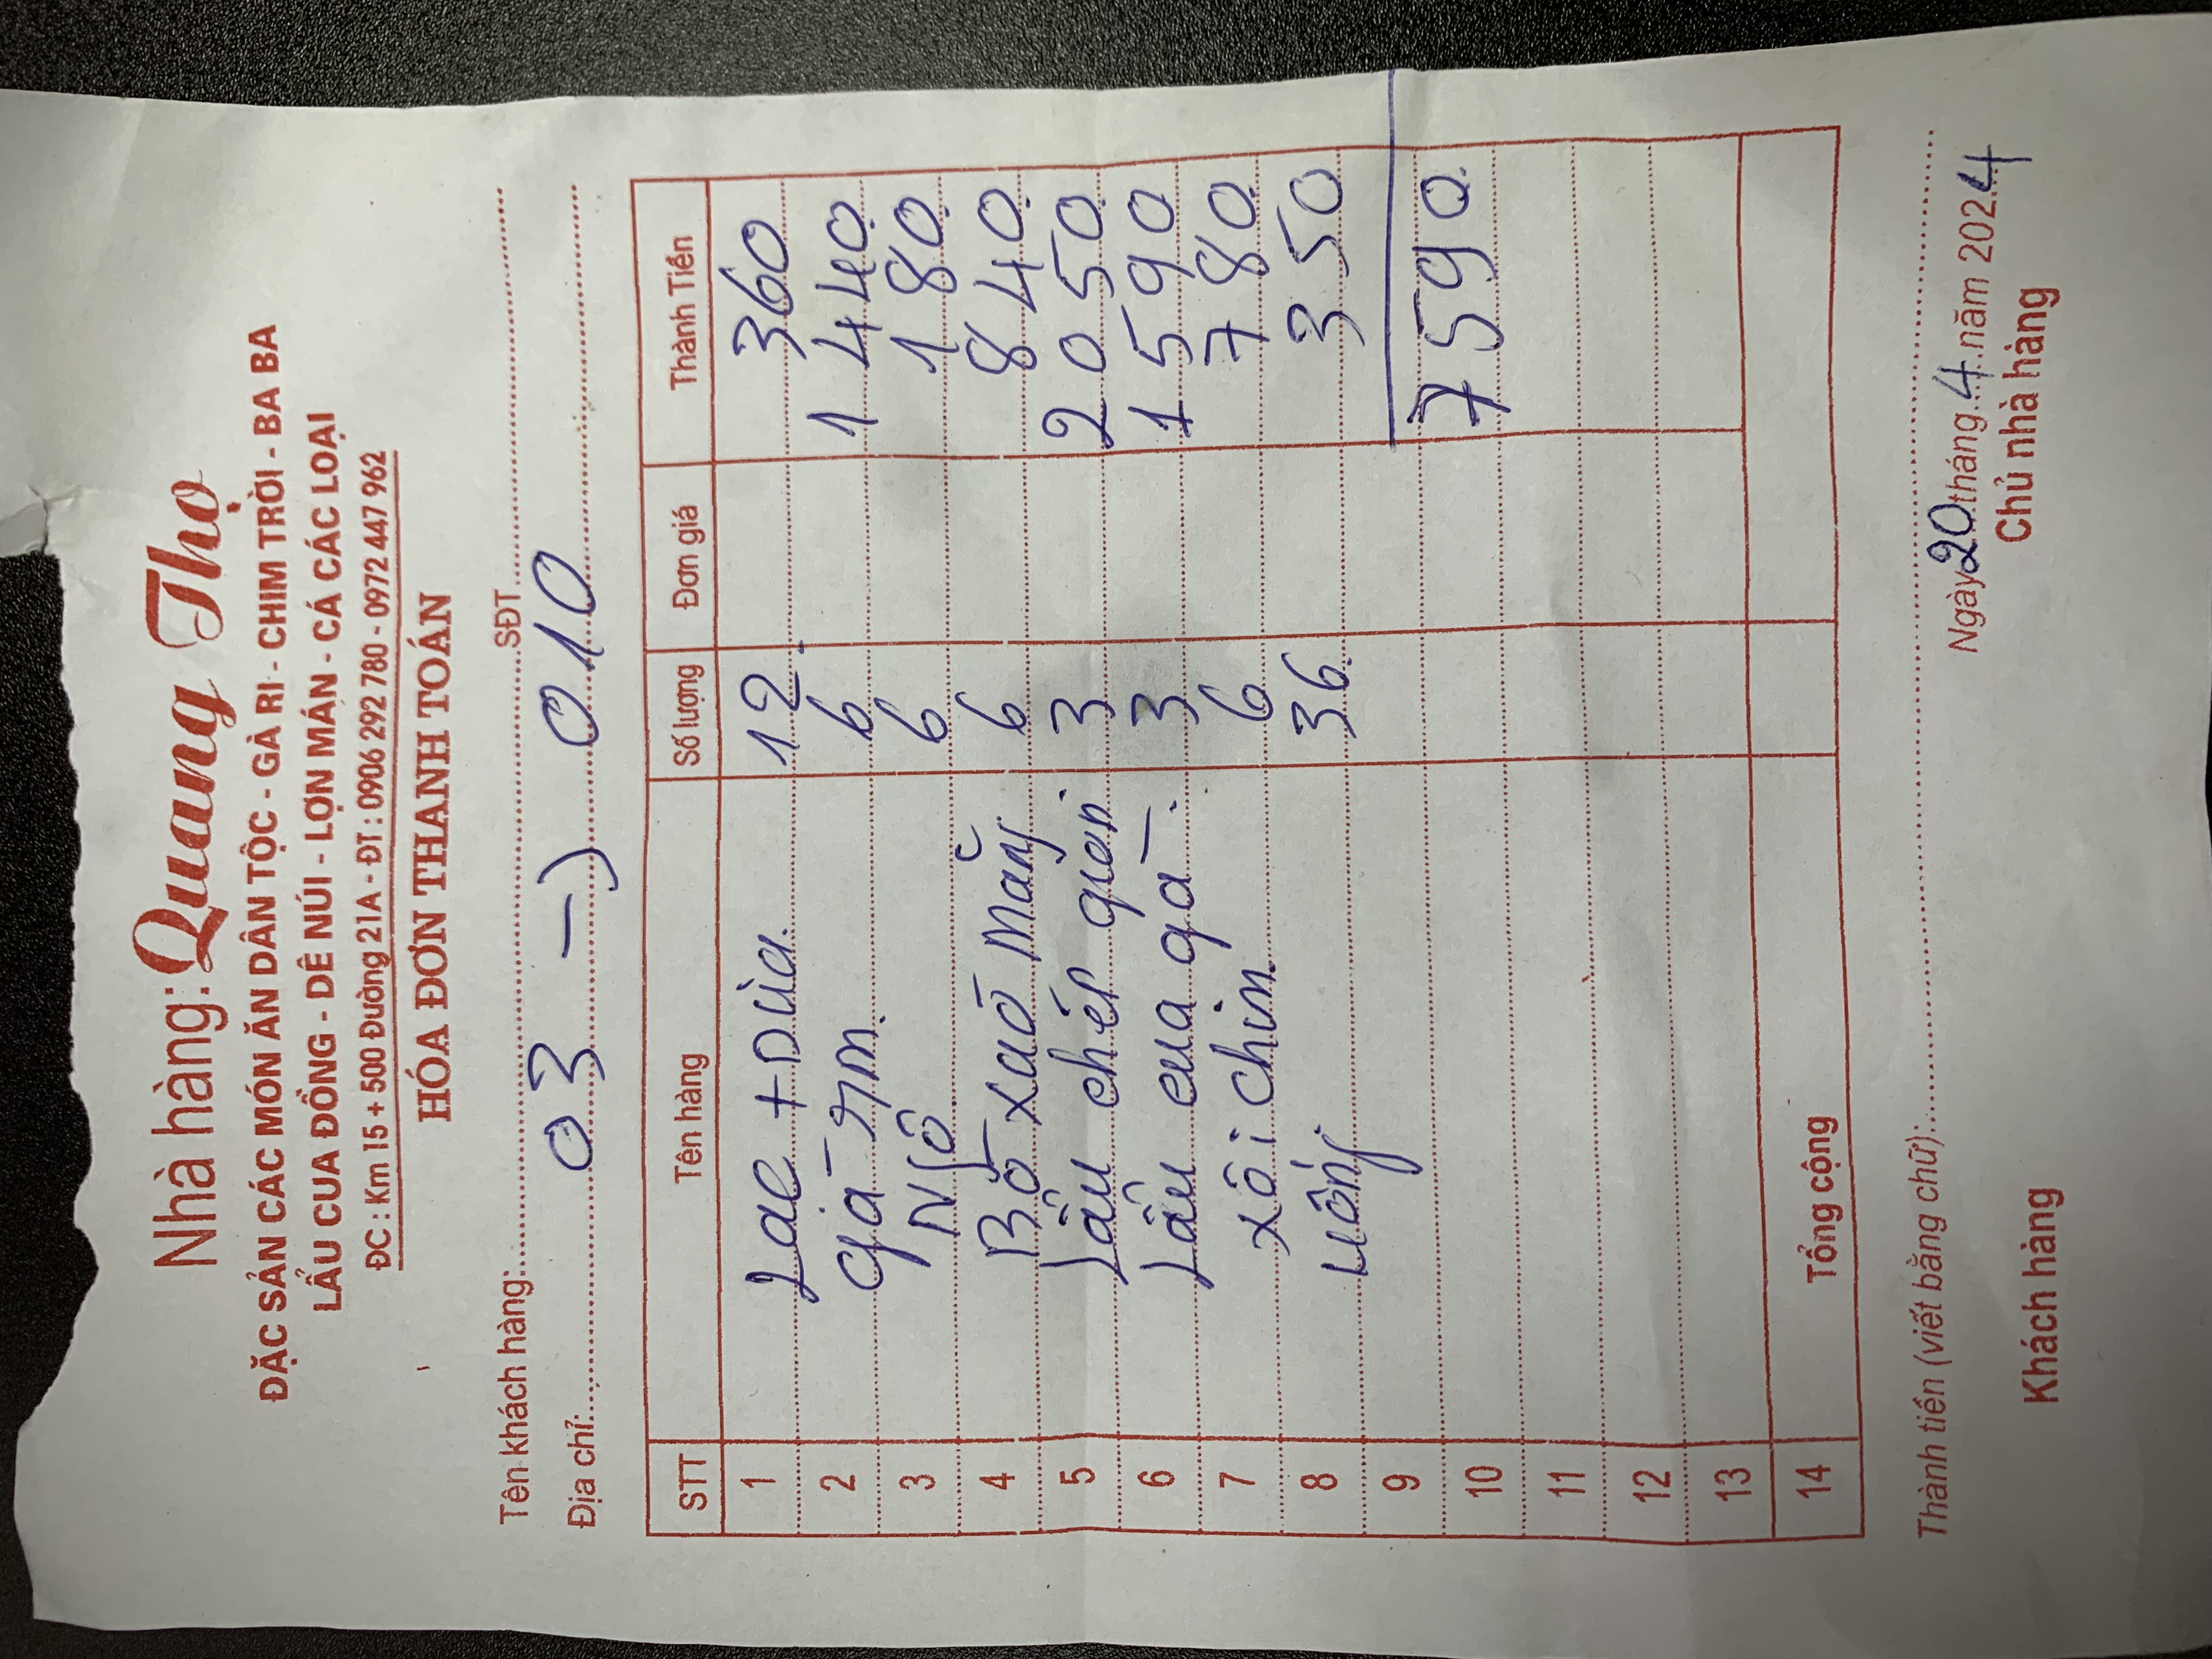 Nhà hàng: Quang Thọ
ĐẶC SẢN CÁC MÓN ĂN DÂN TỘC - GÀ RI - CHIM TRỜI - BA BA
LẨU CUA ĐỒNG - DÊ NÚI - LỢN MÁN - CÁ CÁC LOẠI
ĐC : Km 15 + 500 Đường 21A - ĐT : 0906 292 780 - 0972 447 962
HÓA ĐƠN THANH TOÁN
Tên khách hàng: SĐT
Địa chỉ: 03 -> 010
STT Tên hàng Số lượng Đơn giá Thành Tiền
1 Lạc + Dừa. 12. 360
2 gà 6 1 440.
3 Ngô. 6 180.
4 Bò xào Măng 6 840.
5 Lẩu chép giòn 3 2 050.
6 Lẩu cua gà. 3 1 590
7 xôi chim. 6 780.
8 uống 36. 350
9
10 7590.
11
12
13
14 Tổng cộng
Thành tiền (viết bằng chữ):
Ngày 20 tháng 4 năm 2024
Khách hàng Chủ nhà hàng